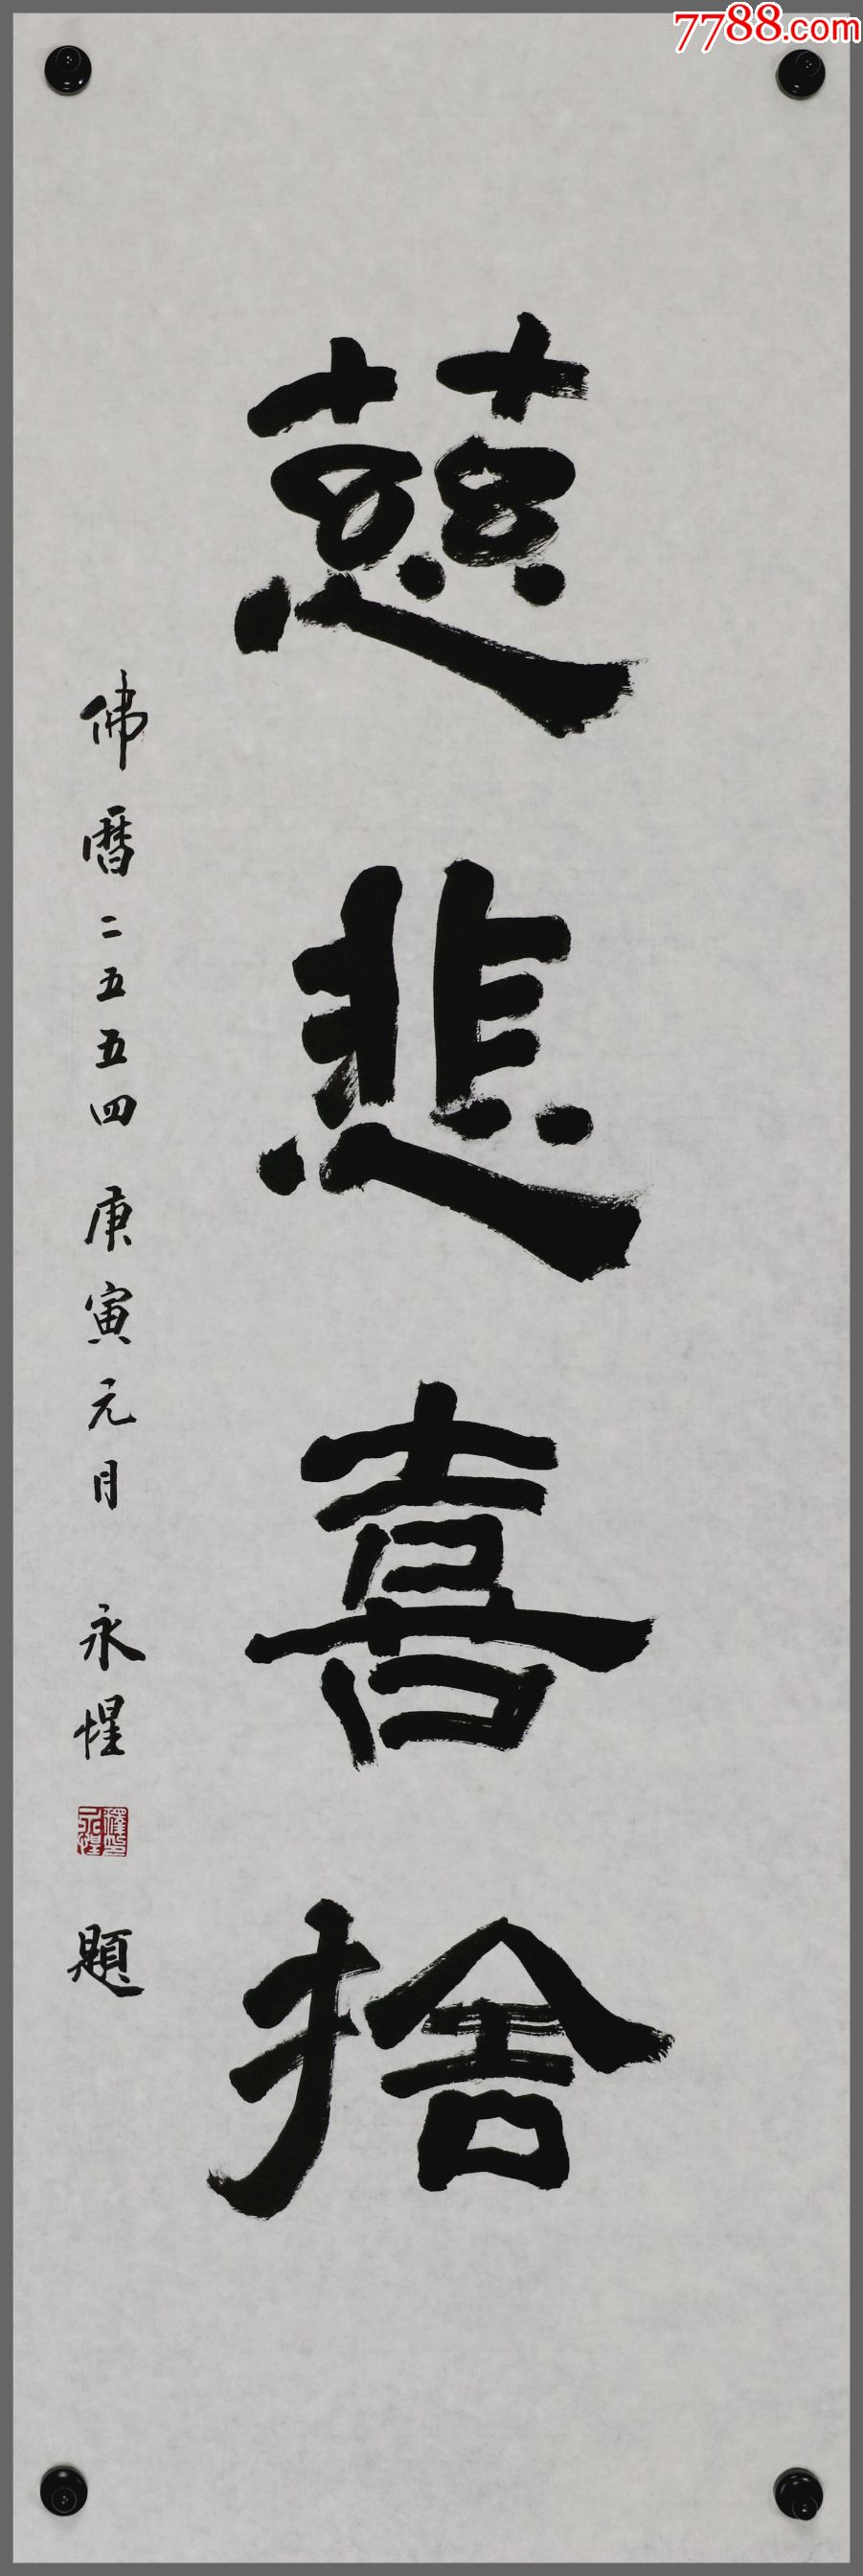 7788.com
慈悲喜捨
佛曆二五五四 庚寅元月 永惺 題
釋永惺印